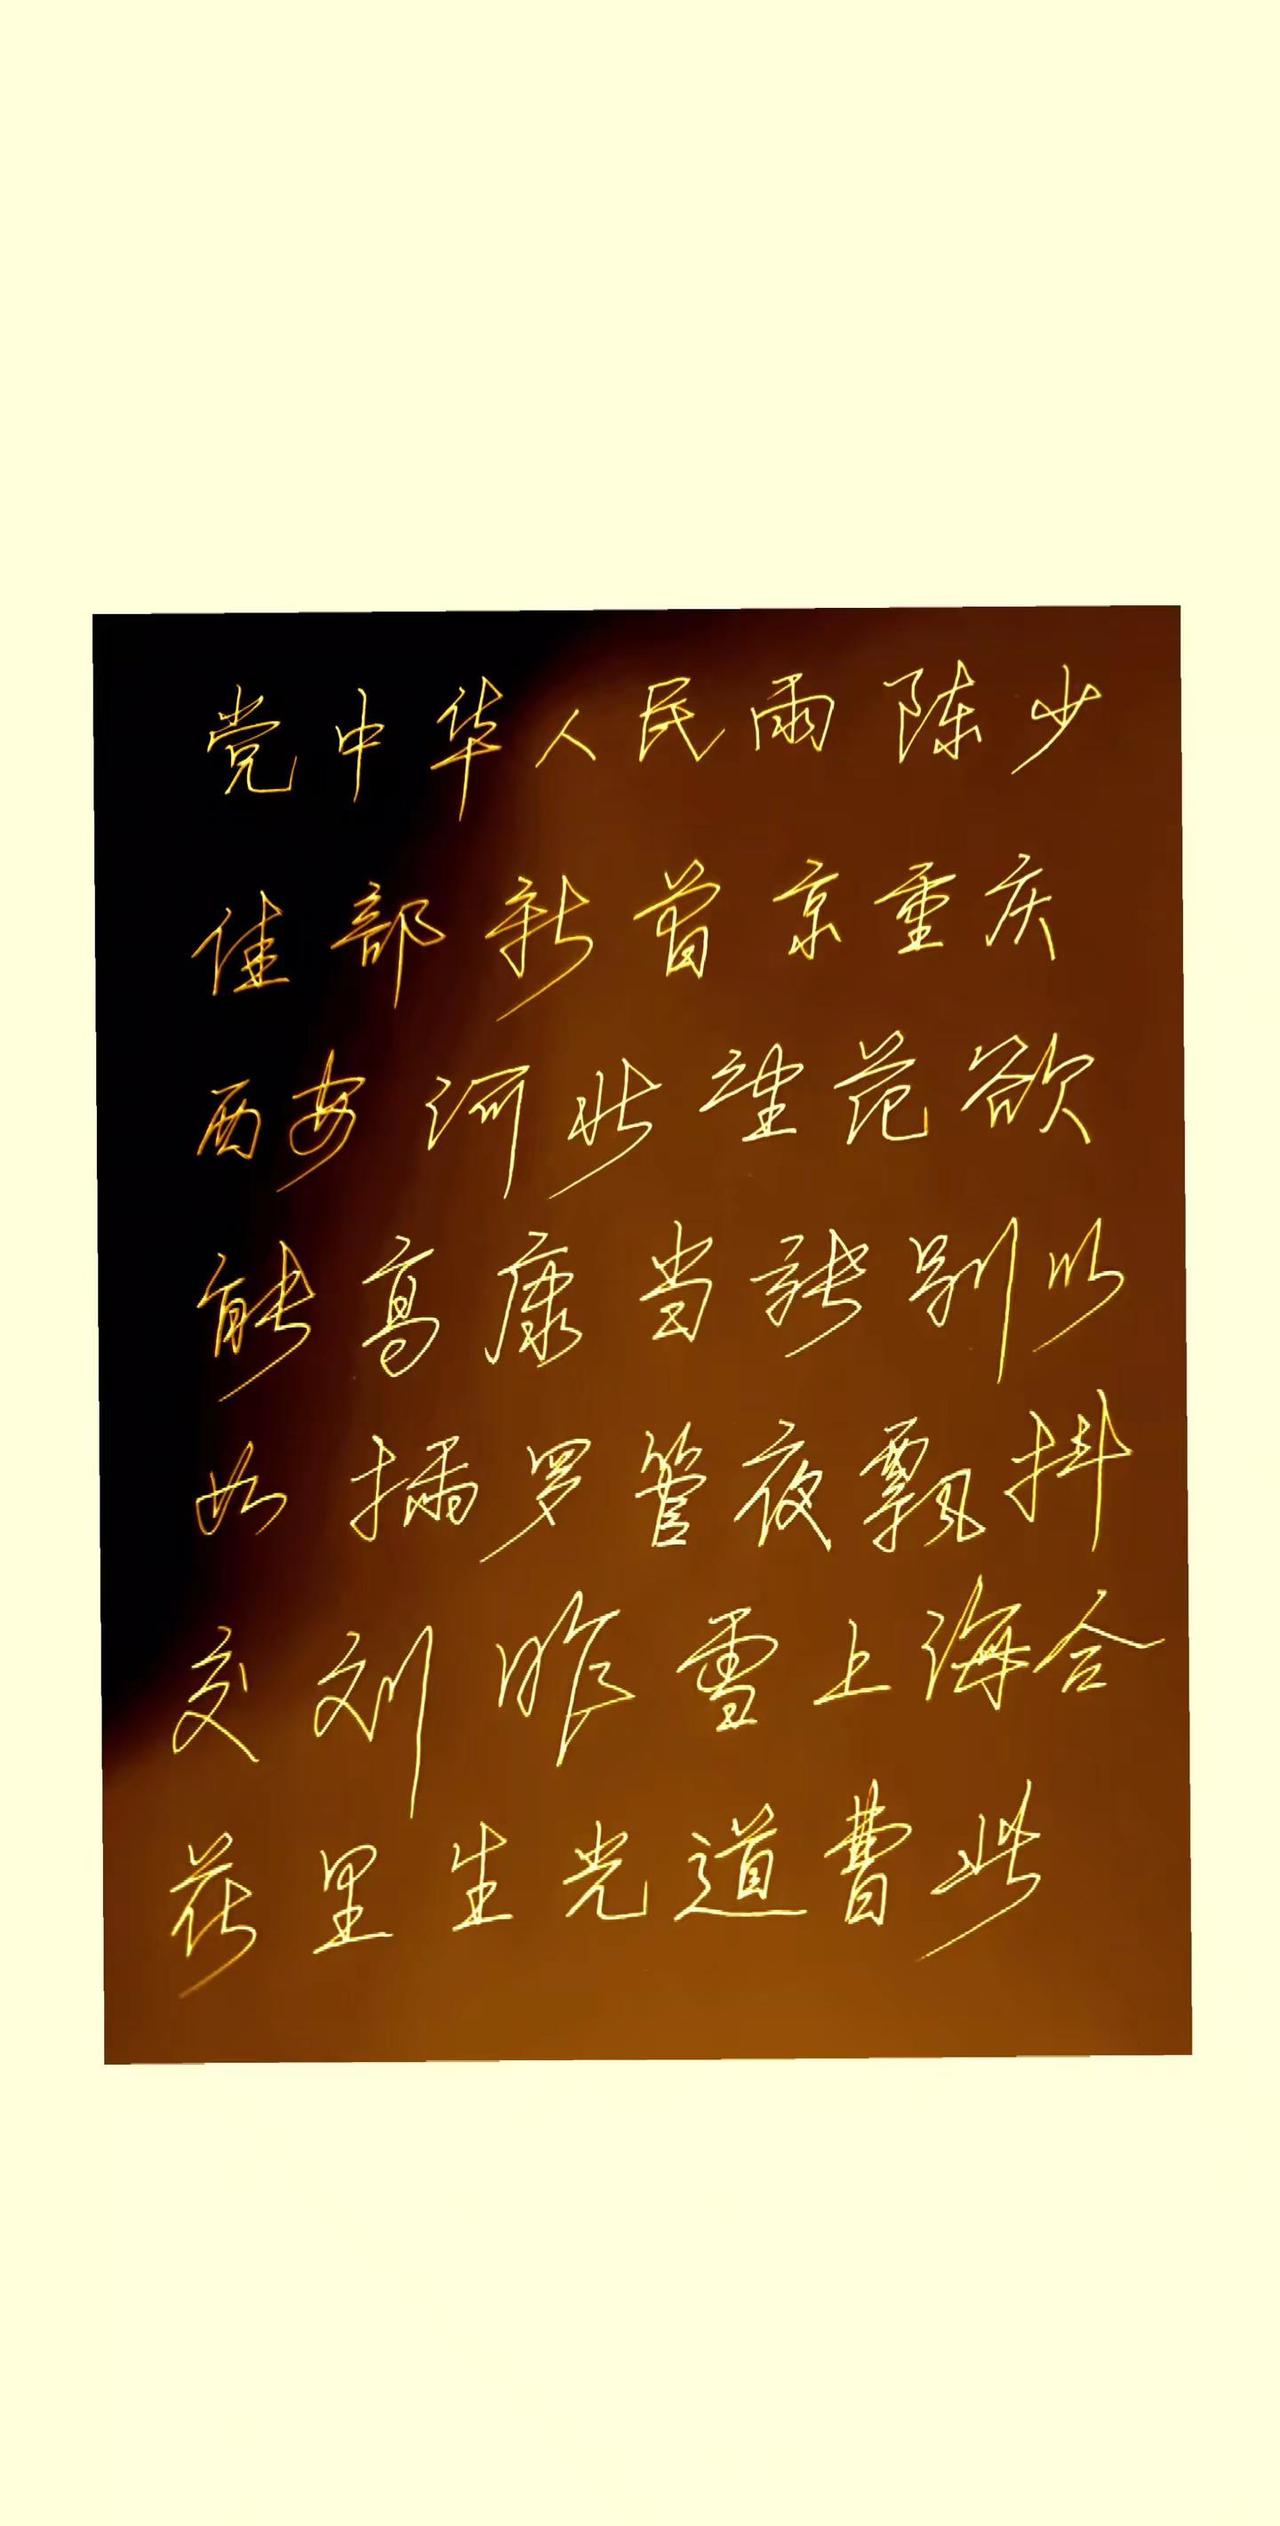 党中华人民雨陈少
佳部新曾京重庆
西安河北望范欲
能高康当张别以
如播罗管夜飘挂
交刘昨雪上海合
花里生光道曹此